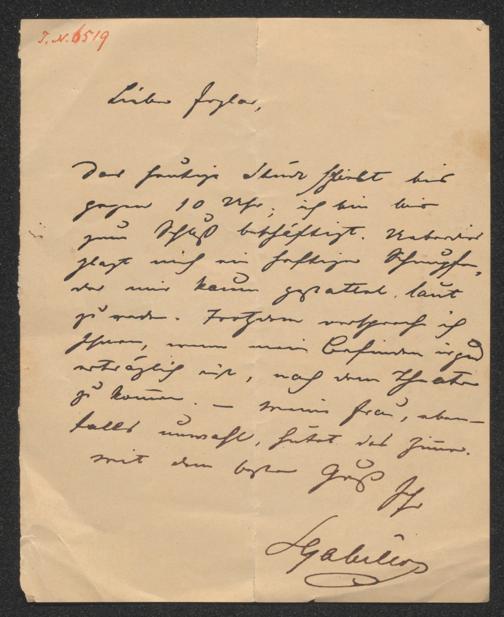 I. N. 6519
Lieber Foglar,
Das heutige Stück spielt bis
gegen 10 Uhr; ich bin bis
zum Schluß beschäftigt. Ueberdies
plagt mich ein heftiger Schnupfen,
der mir kaum gestattet laut
zu reden. Trotzdem verspreche ich
Ihnen, wenn mein Befinden irgend
erträglich ist, nach dem Theater
zu kommen. — Meine Frau, eben-
falls unwohl, hütet das Zimmer.
Mit dem besten Gruß Ihr
LGabillon